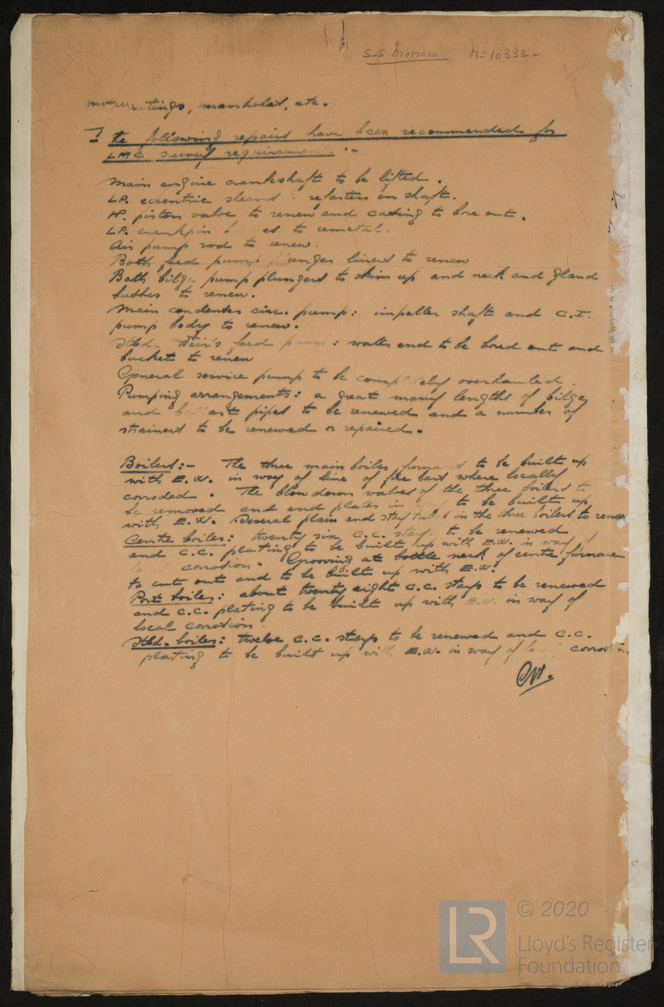 S-S Morrow No 10332-
mountings, manholes, etc.
I The following repairs have been recommended for
LMC survey requirements :-
Main engine crankshaft to be lifted.
LP. eccentric sleaves refasten on shaft.
HP. piston valve to renew and casing to bore out.
LP. crankpin to remetal.
Air pump rod to renew.
Both feed pump plunges liners to renew
Both bilge pump plungers to skim up and neck and gland
bushes to renew.
Main condenser circ. pump: impeller shaft and C.I.
pump body to renew.
Stbd. Weir's feed pump: water end to be bored out and
bucket to renew
General service pump to be completely overhauled.
Pumping arrangements: a great many lengths of bilge
and ballast pipes to be renewed and a number of
strainers to be renewed or repaired.
Boilers:- The three main boiler furnaces to be built up
with E.W. in way of line of fire bars where locally
corroded. The blow down valves of the three boilers to
be removed and end plates in way to be built up
with E.W. Several plain and stay tubes in the three boilers to renew
Centre boiler: twenty six C.C. stays to be renewed
and C.C. plating to be built up with E.W. in way of
corrosion. Grooving at bottle neck of centre furnace
to cut out and to be built up with E.W.
Port boiler: about twenty eight C.C. stays to be renewed
and C.C. plating to be built up with E.W. in way of
local corrosion.
Stbd. boiler: twelve C.C. stays to be renewed and C.C.
plating to be built up with E.W. in way of local corrosion.
LR
© 2020
Lloyd's Register
Foundation